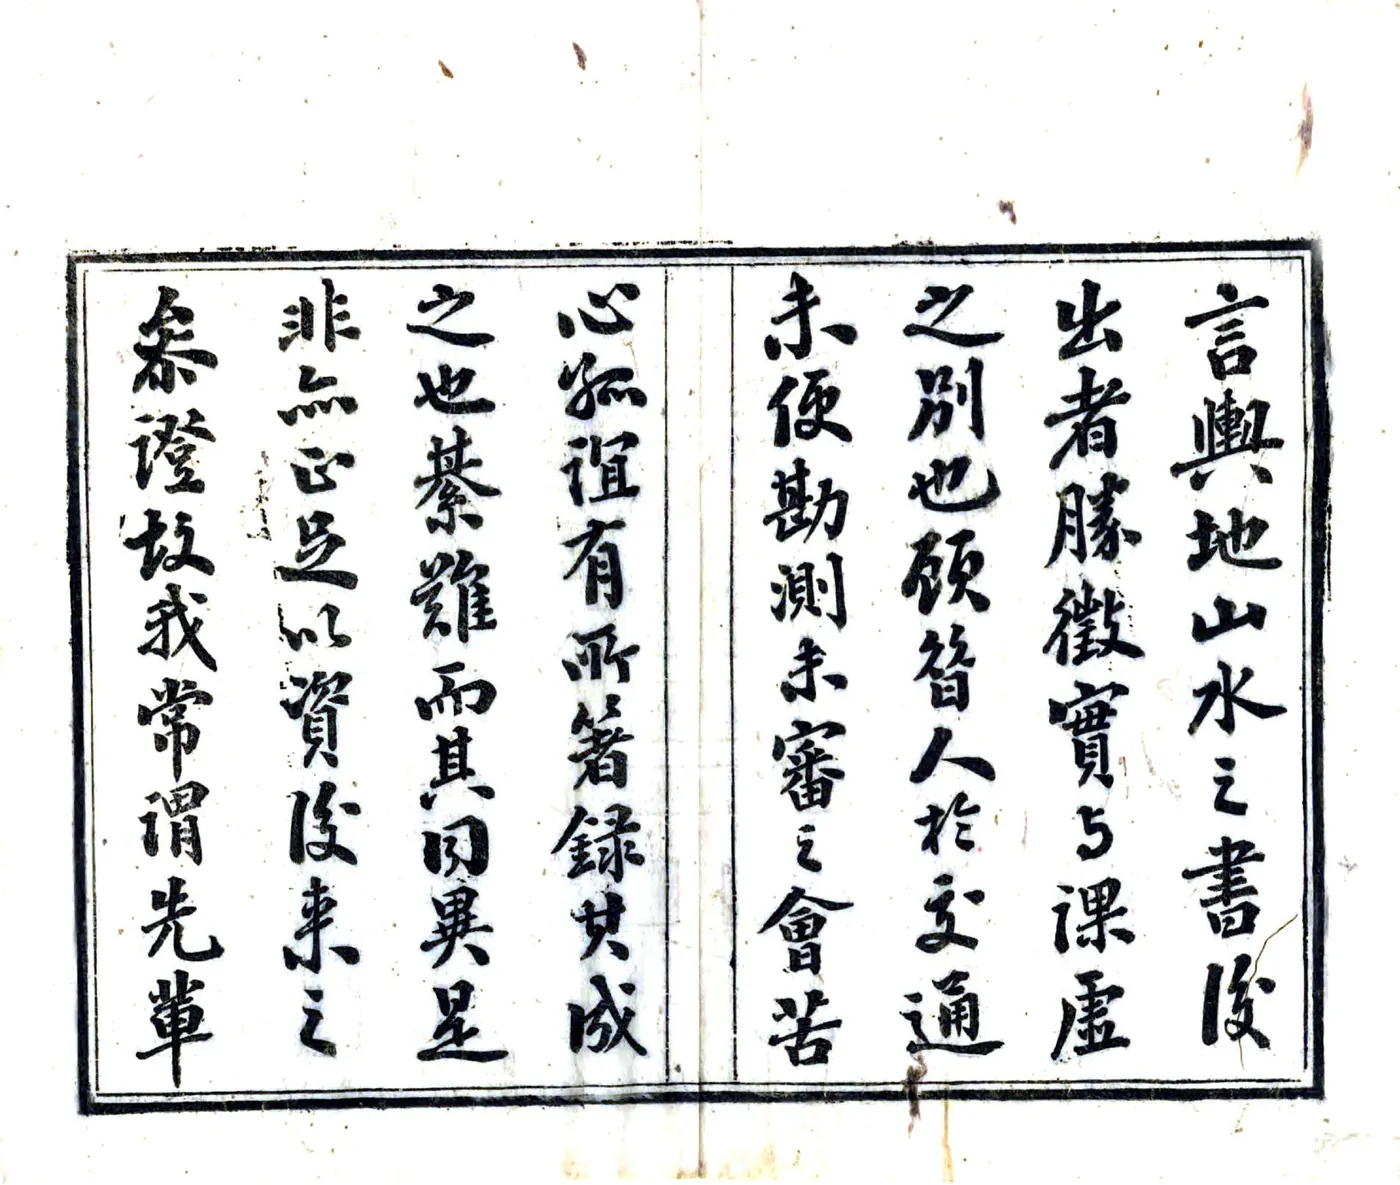 言輿地山水之書後
出者勝徵實与課虛
之別也顧昔人於交通
未便勘測未審之會苦
心孤誼有所箸錄其成
之也綦難而其同異是
非亦正足以資後来之
叅證故我常謂先輩